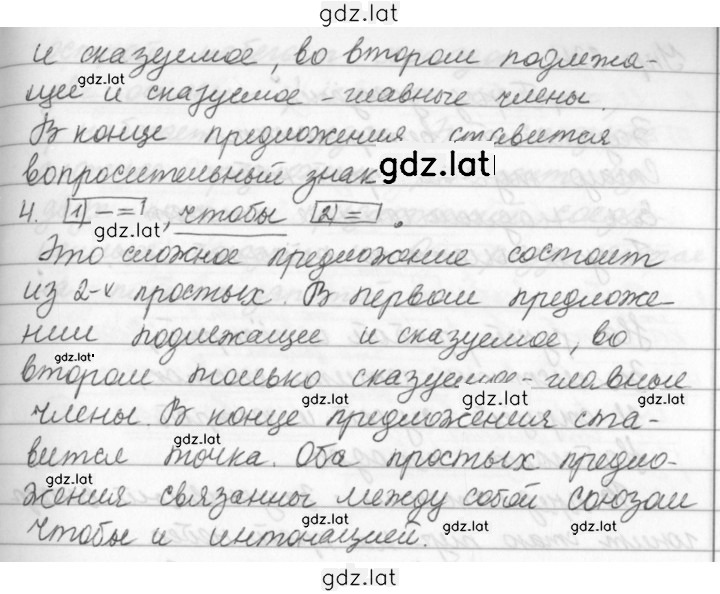 gdz.lat
и сказуемое, во втором подлежа-
gdz.lat
щее и сказуемое - главные члены.
В конце предложения ставится
вопросительный знак gdz.lat
4. [1 - =], чтобы [2 = ].
gdz.lat
Это сложное предложение состоит
из 2-х простых. В первом предложе-
нии подлежащее и сказуемое, во
gdz.lat
втором только сказуемое - главные
gdz.lat gdz.lat gdz.lat
члены. В конце предложения ста-
gdz.lat
вится точка. Оба простых предло-
gdz.lat
жения связанны между собой союзом
gdz.lat gdz.lat gdz.lat
чтобы и интонацией.
gdz.lat